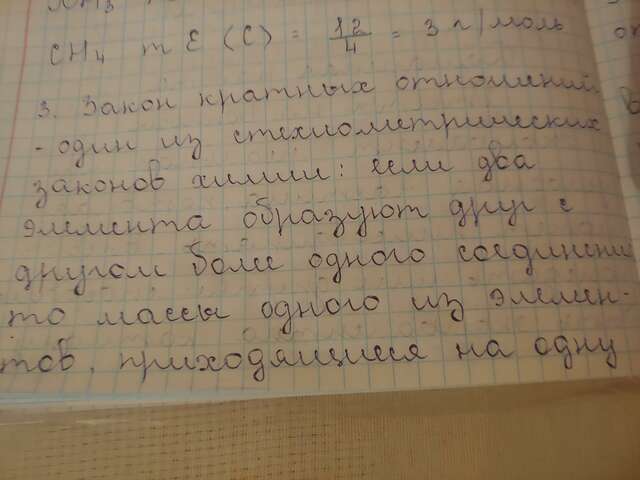 NH3
CH4 mE (C) = 12/4 = 3 г/моль
3. Закон кратных отношений
- один из стехиометрических
законов химии: если два
элемента образуют друг с
другом более одного соединения
то массы одного из элемен-
тов, приходящиеся на одну